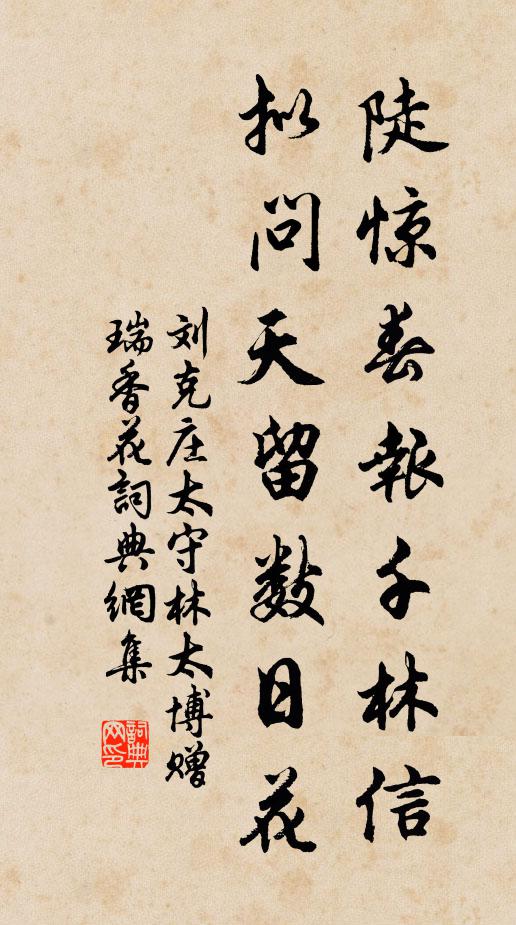 陡惊春報千林信
拟问天留数日花
刘克庄太守林太博赠
瑞香花詞典網集
詞典
网印